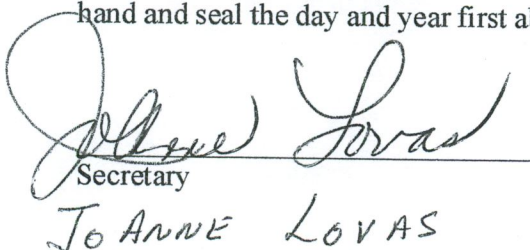 hand and seal the day and year first a
JoAnne Lovas
Secretary
JO ANNE LOVAS